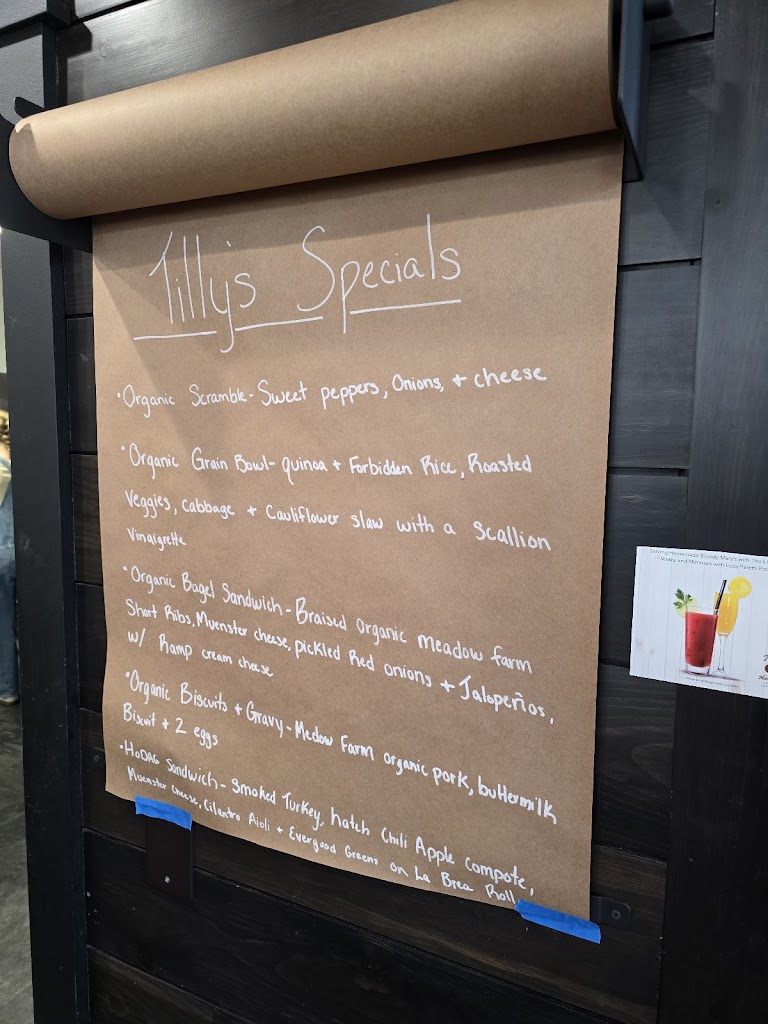 Tilly's Specials
• Organic Scramble - Sweet peppers, Onions, + cheese
• Organic Grain Bowl - quinoa + Forbidden Rice, Roasted
Veggies, cabbage + Cauliflower slaw with a Scallion
Vinaigrette
• Organic Bagel Sandwich - Braised organic meadow farm
Short Ribs, Muenster cheese, pickled Red onions + Jalopeños,
w/ Ramp cream cheese
• Organic Biscuits + Gravy - Medow Farm organic pork, buttermilk
Biscuit + 2 eggs
• HoDAG Sandwich - Smoked Turkey, hatch Chili Apple compote,
Muenster cheese, Cilantro Aioli + Evergood Greens on La Brea Roll
Serving Homemade Bloody Mary's with Tito's
Vodka and Mimosas with Luca Paretti